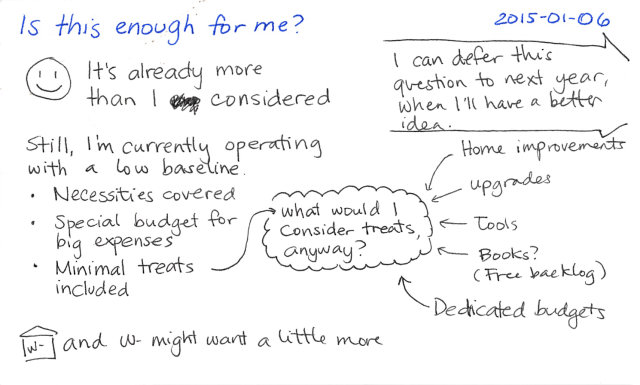 Is this enough for me?
2015-01-06
It's already more
than I considered
I can defer this
question to next year,
when I'll have a better
idea.
Still, I'm currently operating
with a low baseline.
• Necessities covered
• Special budget for
big expenses
• Minimal treats
included
what would I
consider treats,
anyway?
Home improvements
upgrades
Tools
Books?
(Free backlog)
Dedicated budgets
W-
and W- might want a little more